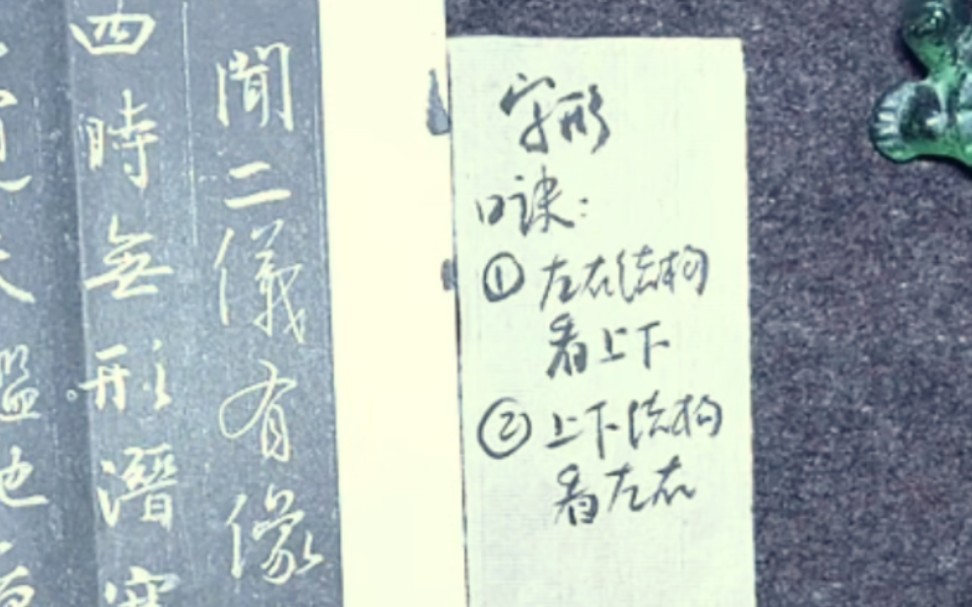 聞二儀有像
四時無形潛寒
字形
口诀:
①左右结构
看上下
②上下结构
看左右